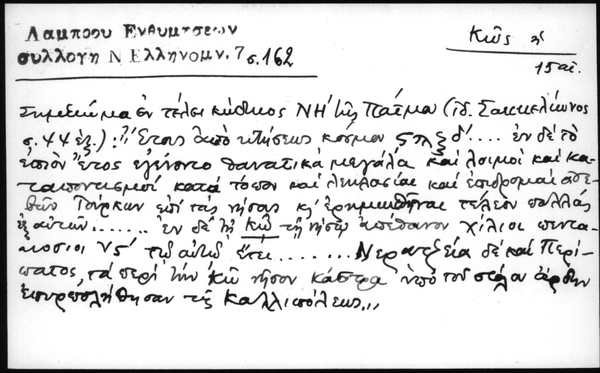 Λαμπρου Ενθυμησεων
συλλογη Ν Ελληνομν. 7 σ. 162
Κῶς
15 αἰ.
Σημείωμα ἐν τέλει κώδικος ΝΗ' τῆς Πάτμου (ἰδ. Σακκελίωνος
σ. 44 ἑξ.): Ἔτους ἀπὸ κτήσεως κόσμου ϛπξδ'.... ἐν δὲ τὸ
ἔτος ἐγένοντο θανατικὰ μεγάλα καὶ λοιμοὶ καὶ κα-
ταποντισμοὶ κατὰ τόπον καὶ λεηλασίαι καὶ ἐπιδρομαὶ ἀσε-
βῶν Τούρκων ἐπὶ τὰς νήσους κ' ἐρημωθῆναι τελέον πολλὰς
ἐξ αὐτῶν....... ἐν δὲ τῇ Κῷ τῇ νήσῳ ἀπέθανον χίλιοι πεντα-
κόσιοι νϛ' τῷ αὐτῷ ἔτει........ Νερατζεία δὲ καὶ Περί-
πατος, τὰ περὶ τὴν Κῶ νῆσον κάστρα ὑπὸ τοῦ στόλου ἄρδην
ἐπυρπολήθησαν τῆς Καλλιπόλεως,,